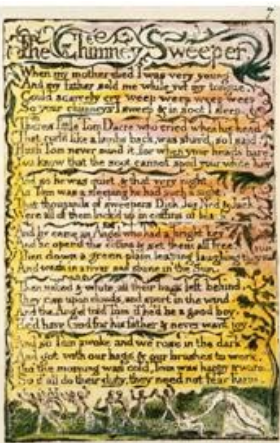 The Chimney Sweeper
When my mother died I was very young,
And my father sold me while yet my tongue,
Could scarcely cry weep weep weep weep.
So your chimneys I sweep & in soot I sleep.
Theres little Tom Dacre who cried when his head
That curl'd like a lambs back, was shav'd, so I said,
Hush Tom never mind it, for when your head's bare,
You know that the soot cannot spoil your white hair
And so he was quiet, & that very night,
As Tom was a sleeping he had such a sight
That thousands of sweepers Dick, Joe, Ned & Jack
Were all of them lock'd up in coffins of black
And by came an Angel who had a bright key
And he open'd the coffins & set them all free
Then down a green plain leaping laughing they run
And wash in a river and shine in the Sun.
Then naked & white, all their bags left behind,
They rise upon clouds, and sport in the wind
And the Angel told Tom if he'd be a good boy,
He'd have God for his father & never want joy.
And so Tom awoke and we rose in the dark
And got with our bags & our brushes to work,
Tho the morning was cold, Tom was happy & warm,
So if all do their duty, they need not fear harm.